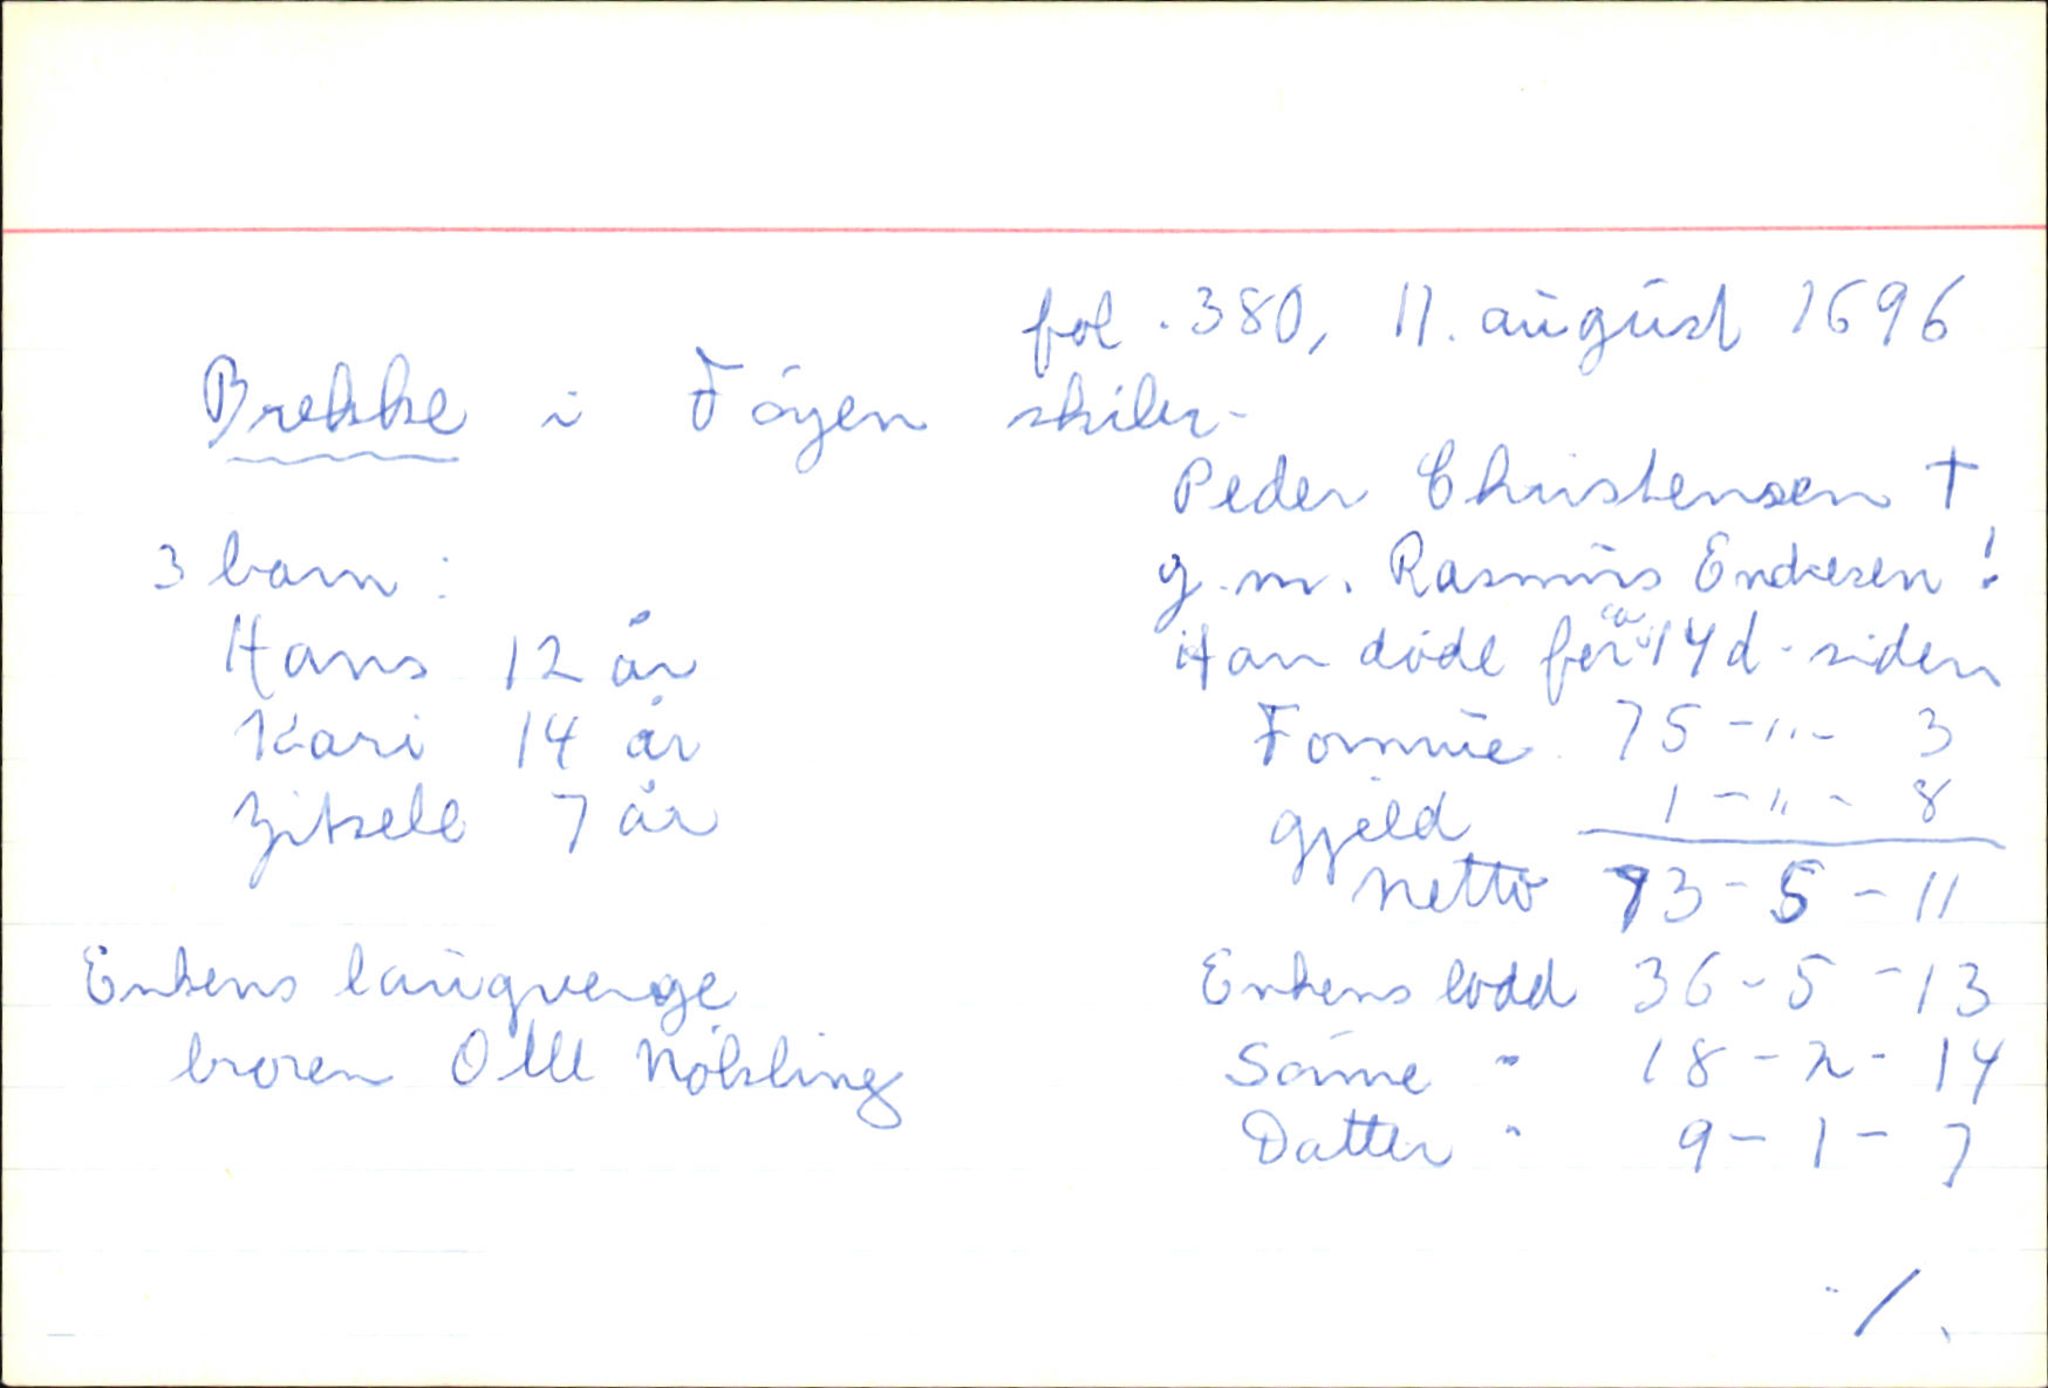 fol. 380, 11. august 1696
Brekke i Föyen skibr.
Peder Christensen †
3 barn: g.m. Rasmus Endresen!
Hans 12 år Han döde for ca 14 d. siden
Kari 14 år Formue 75 - " - 3
Zitsele 7 år gjeld 1 - " - 8
Netto 73 - 5 - 11
Enkens laugverge Enkens lodd 36 - 5 - 13
broren Olle Nökling Sönne " 18 - 2 - 14
Datter " 9 - 1 - 7
./.